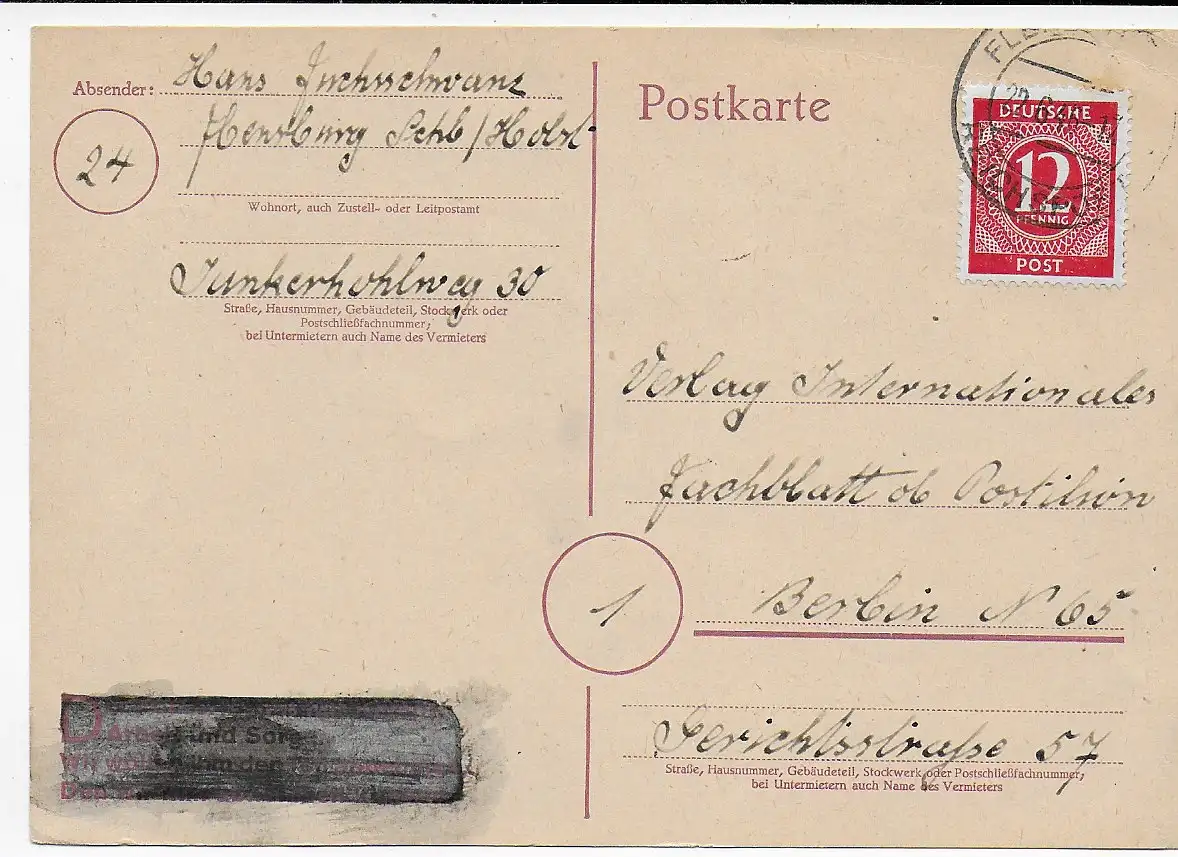 Absender: Hans Fuchsschwanz
Flensburg Schl/Holst
24
Wohnort, auch Zustell- oder Leitpostamt
Junkerhohlweg 30
Straße, Hausnummer, Gebäudeteil, Stockwerk oder
Postschließfachnummer;
bei Untermietern auch Name des Vermieters
und Sorge
ihm der
Postkarte
DEUTSCHE
12
PFENNIG
POST
Verlag Internationales
Fachblatt ob Postilion
1
Berlin N 65
Gerichtsstraße 57
Straße, Hausnummer, Gebäudeteil, Stockwerk oder Postschließfachnummer;
bei Untermietern auch Name des Vermieters